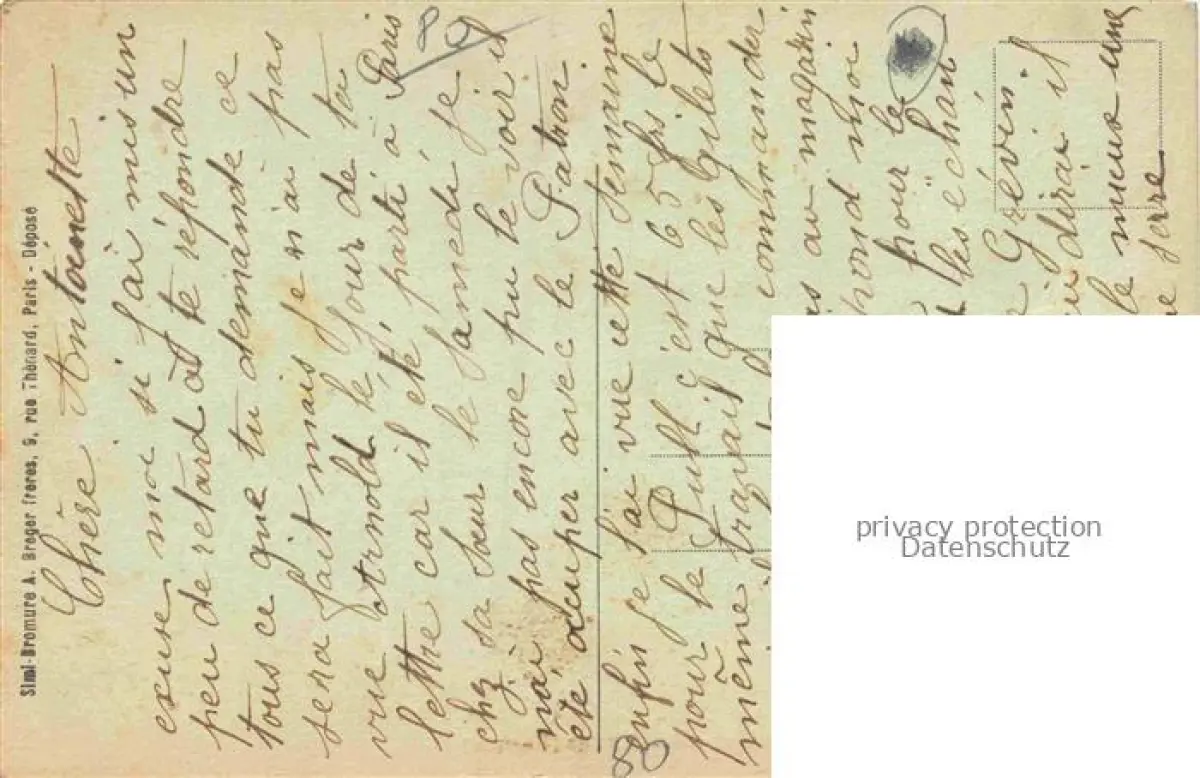 Simi-Bromure A. Breger frères, 9, rue Thénard, Paris - Déposé
Chère Antoinette
excuse moi si j'ai mis un
peu de retard à te répondre
tous ce que tu demmande ce
sera fait mais je n'ai pas
vue Arnold le jour de ta
lettre car il été parti à Paris
chez sa sœur le samedi je
n'ai pas encore pu le voir il
été accuper avec le Patron.
enfin je l'ai vue cette semaine
pour le Pull c'est 65 frs le
même travail que les gilets
commander
au magasin
moi
pour le
les echan
Grévin
dirai il
le mieux une
privacy protection
Datenschutz